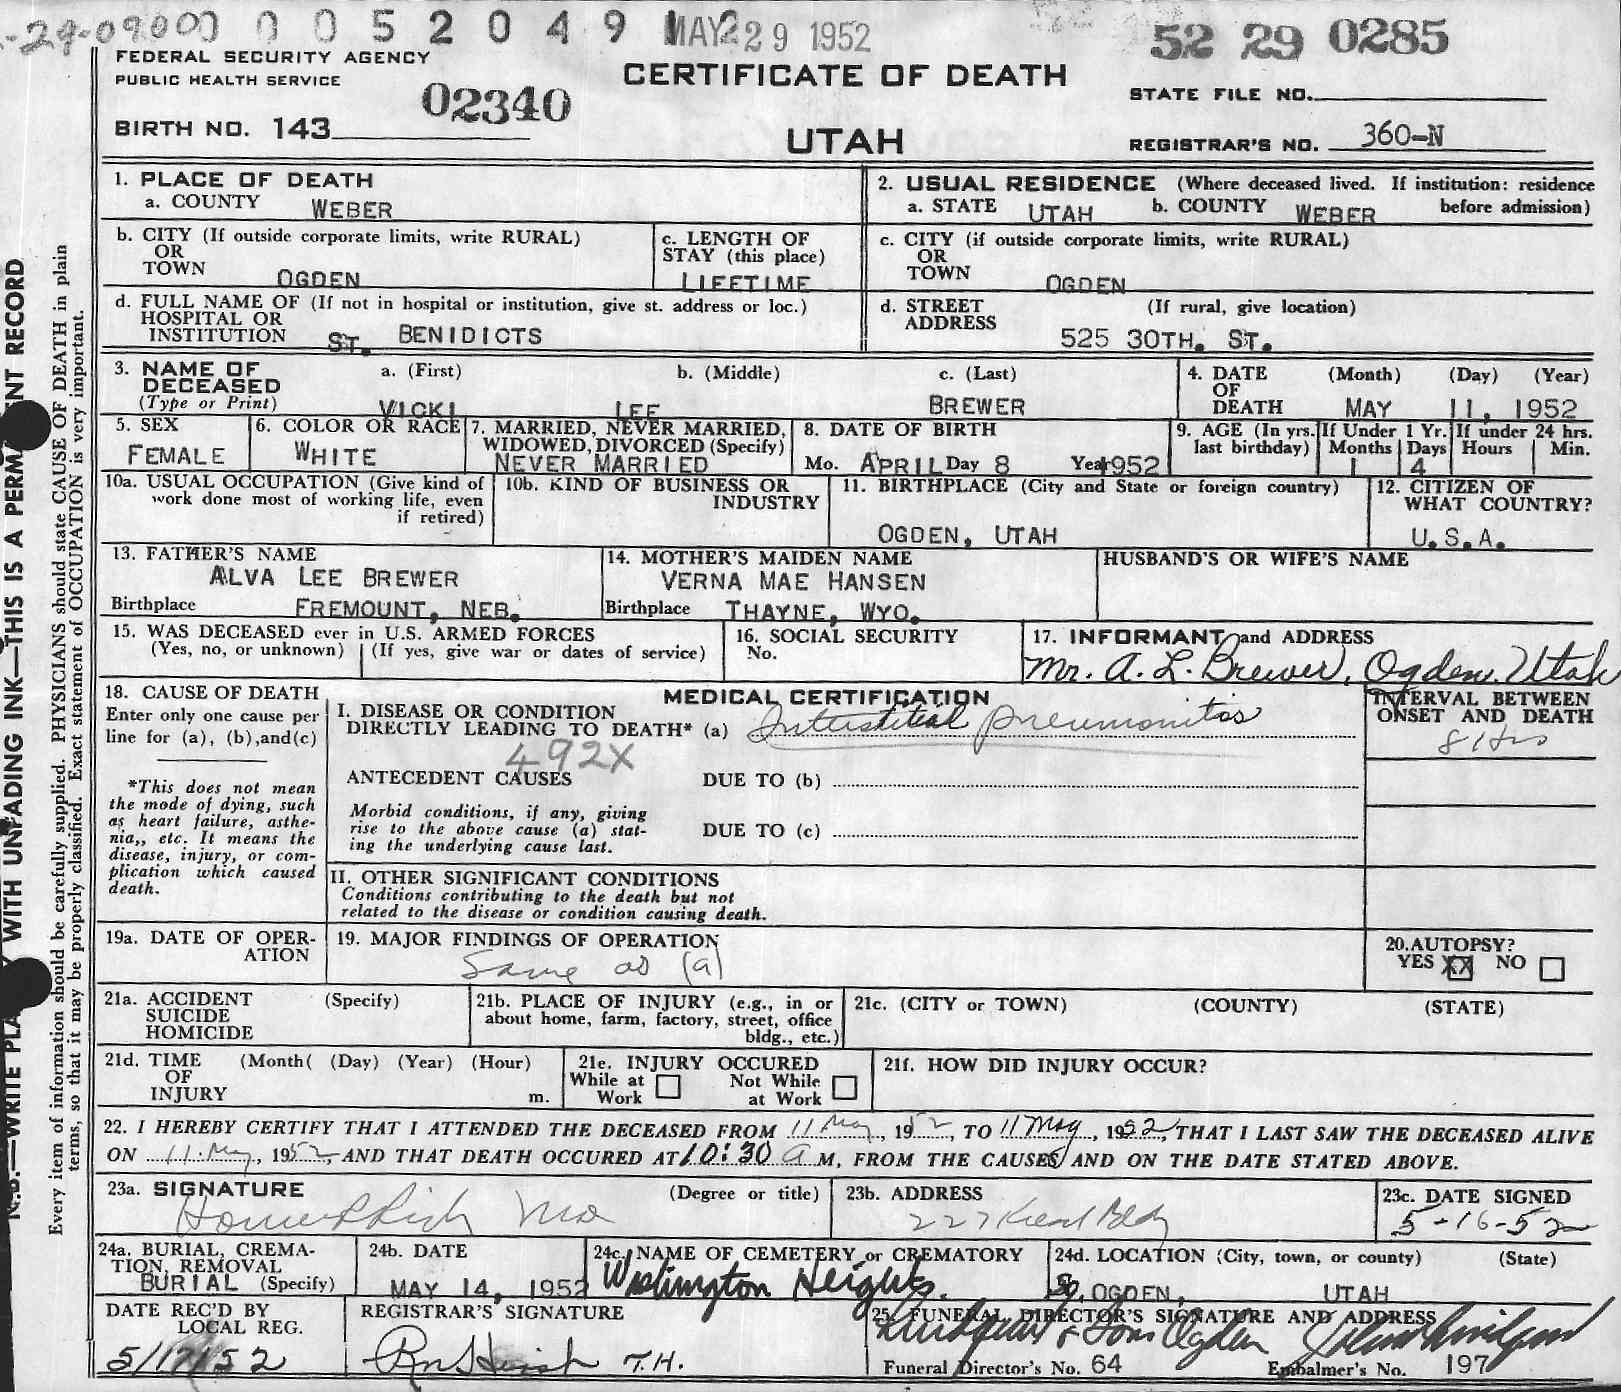 0 0 5 2 0 4 9 MAY 29 1952
52 29 0285
FEDERAL SECURITY AGENCY
PUBLIC HEALTH SERVICE
02340
CERTIFICATE OF DEATH
STATE FILE NO.
BIRTH NO. 143
UTAH
REGISTRAR'S NO. 360-N
1. PLACE OF DEATH
a. COUNTY WEBER
2. USUAL RESIDENCE (Where deceased lived. If institution: residence before admission)
a. STATE UTAH b. COUNTY WEBER
b. CITY (If outside corporate limits, write RURAL)
OR
TOWN OGDEN
c. LENGTH OF
STAY (this place)
LIFETIME
c. CITY (if outside corporate limits, write RURAL)
OR
TOWN OGDEN
d. FULL NAME OF (If not in hospital or institution, give st. address or loc.)
HOSPITAL OR
INSTITUTION ST. BENIDICTS
d. STREET (If rural, give location)
ADDRESS 525 30TH. ST.
3. NAME OF a. (First) b. (Middle) c. (Last)
DECEASED
(Type or Print) VICKI LEE BREWER
4. DATE (Month) (Day) (Year)
OF
DEATH MAY 11, 1952
5. SEX
FEMALE
6. COLOR OR RACE
WHITE
7. MARRIED, NEVER MARRIED,
WIDOWED, DIVORCED (Specify)
NEVER MARRIED
8. DATE OF BIRTH
Mo. APRIL Day 8 Year 1952
9. AGE (In yrs. last birthday)
If Under 1 Yr. If under 24 hrs.
Months Days Hours Min.
1 4
10a. USUAL OCCUPATION (Give kind of
work done most of working life, even
if retired)
10b. KIND OF BUSINESS OR
INDUSTRY
11. BIRTHPLACE (City and State or foreign country)
OGDEN, UTAH
12. CITIZEN OF
WHAT COUNTRY?
U.S.A.
13. FATHER'S NAME
ALVA LEE BREWER
Birthplace FREMOUNT, NEB.
14. MOTHER'S MAIDEN NAME
VERNA MAE HANSEN
Birthplace THAYNE, WYO.
HUSBAND'S OR WIFE'S NAME
15. WAS DECEASED ever in U.S. ARMED FORCES
(Yes, no, or unknown) (If yes, give war or dates of service)
16. SOCIAL SECURITY
No.
17. INFORMANT and ADDRESS
Mr. A. L. Brewer, Ogden, Utah
18. CAUSE OF DEATH
Enter only one cause per
line for (a), (b), and (c)
*This does not mean
the mode of dying, such
as heart failure, asthe-
nia,, etc. It means the
disease, injury, or com-
plication which caused
death.
MEDICAL CERTIFICATION
I. DISEASE OR CONDITION
DIRECTLY LEADING TO DEATH* (a) Interstitial pneumonitis
492X
ANTECEDENT CAUSES DUE TO (b)
Morbid conditions, if any, giving
rise to the above cause (a) stat-
ing the underlying cause last.
DUE TO (c)
INTERVAL BETWEEN
ONSET AND DEATH
8 Hrs
II. OTHER SIGNIFICANT CONDITIONS
Conditions contributing to the death but not
related to the disease or condition causing death.
19a. DATE OF OPER-
ATION
19. MAJOR FINDINGS OF OPERATION
Same as (a)
20. AUTOPSY?
YES XX NO
21a. ACCIDENT (Specify)
SUICIDE
HOMICIDE
21b. PLACE OF INJURY (e.g., in or
about home, farm, factory, street, office
bldg., etc.)
21c. (CITY or TOWN) (COUNTY) (STATE)
21d. TIME (Month( (Day) (Year) (Hour)
OF
INJURY m.
21e. INJURY OCCURED
While at Work Not While at Work
21f. HOW DID INJURY OCCUR?
22. I HEREBY CERTIFY THAT I ATTENDED THE DECEASED FROM 11 May, 1952, TO 11 May, 1952, THAT I LAST SAW THE DECEASED ALIVE
ON 11 May, 1952, AND THAT DEATH OCCURED AT 10:30 a M, FROM THE CAUSES AND ON THE DATE STATED ABOVE.
23a. SIGNATURE (Degree or title)
Homer Rich MD
23b. ADDRESS
227 Kiesel Bldg
23c. DATE SIGNED
5-16-52
24a. BURIAL, CREMA-
TION, REMOVAL
BURIAL (Specify)
24b. DATE
MAY 14, 1952
24c. NAME OF CEMETERY or CREMATORY
Washington Heights.
24d. LOCATION (City, town, or county) (State)
So. OGDEN, UTAH
DATE REC'D BY
LOCAL REG.
5/17/52
REGISTRAR'S SIGNATURE
T.H.
25. FUNERAL DIRECTOR'S SIGNATURE AND ADDRESS
Lindquist & Sons Ogden
Funeral Director's No. 64 Embalmer's No. 197
N.B.—WRITE PLA WITH UNFADING INK—THIS IS A PERMA ENT RECORD
Every item of information should be carefully supplied. PHYSICIANS should state CAUSE OF DEATH in plain
terms, so that it may be properly classified. Exact statement of OCCUPATION is very important.